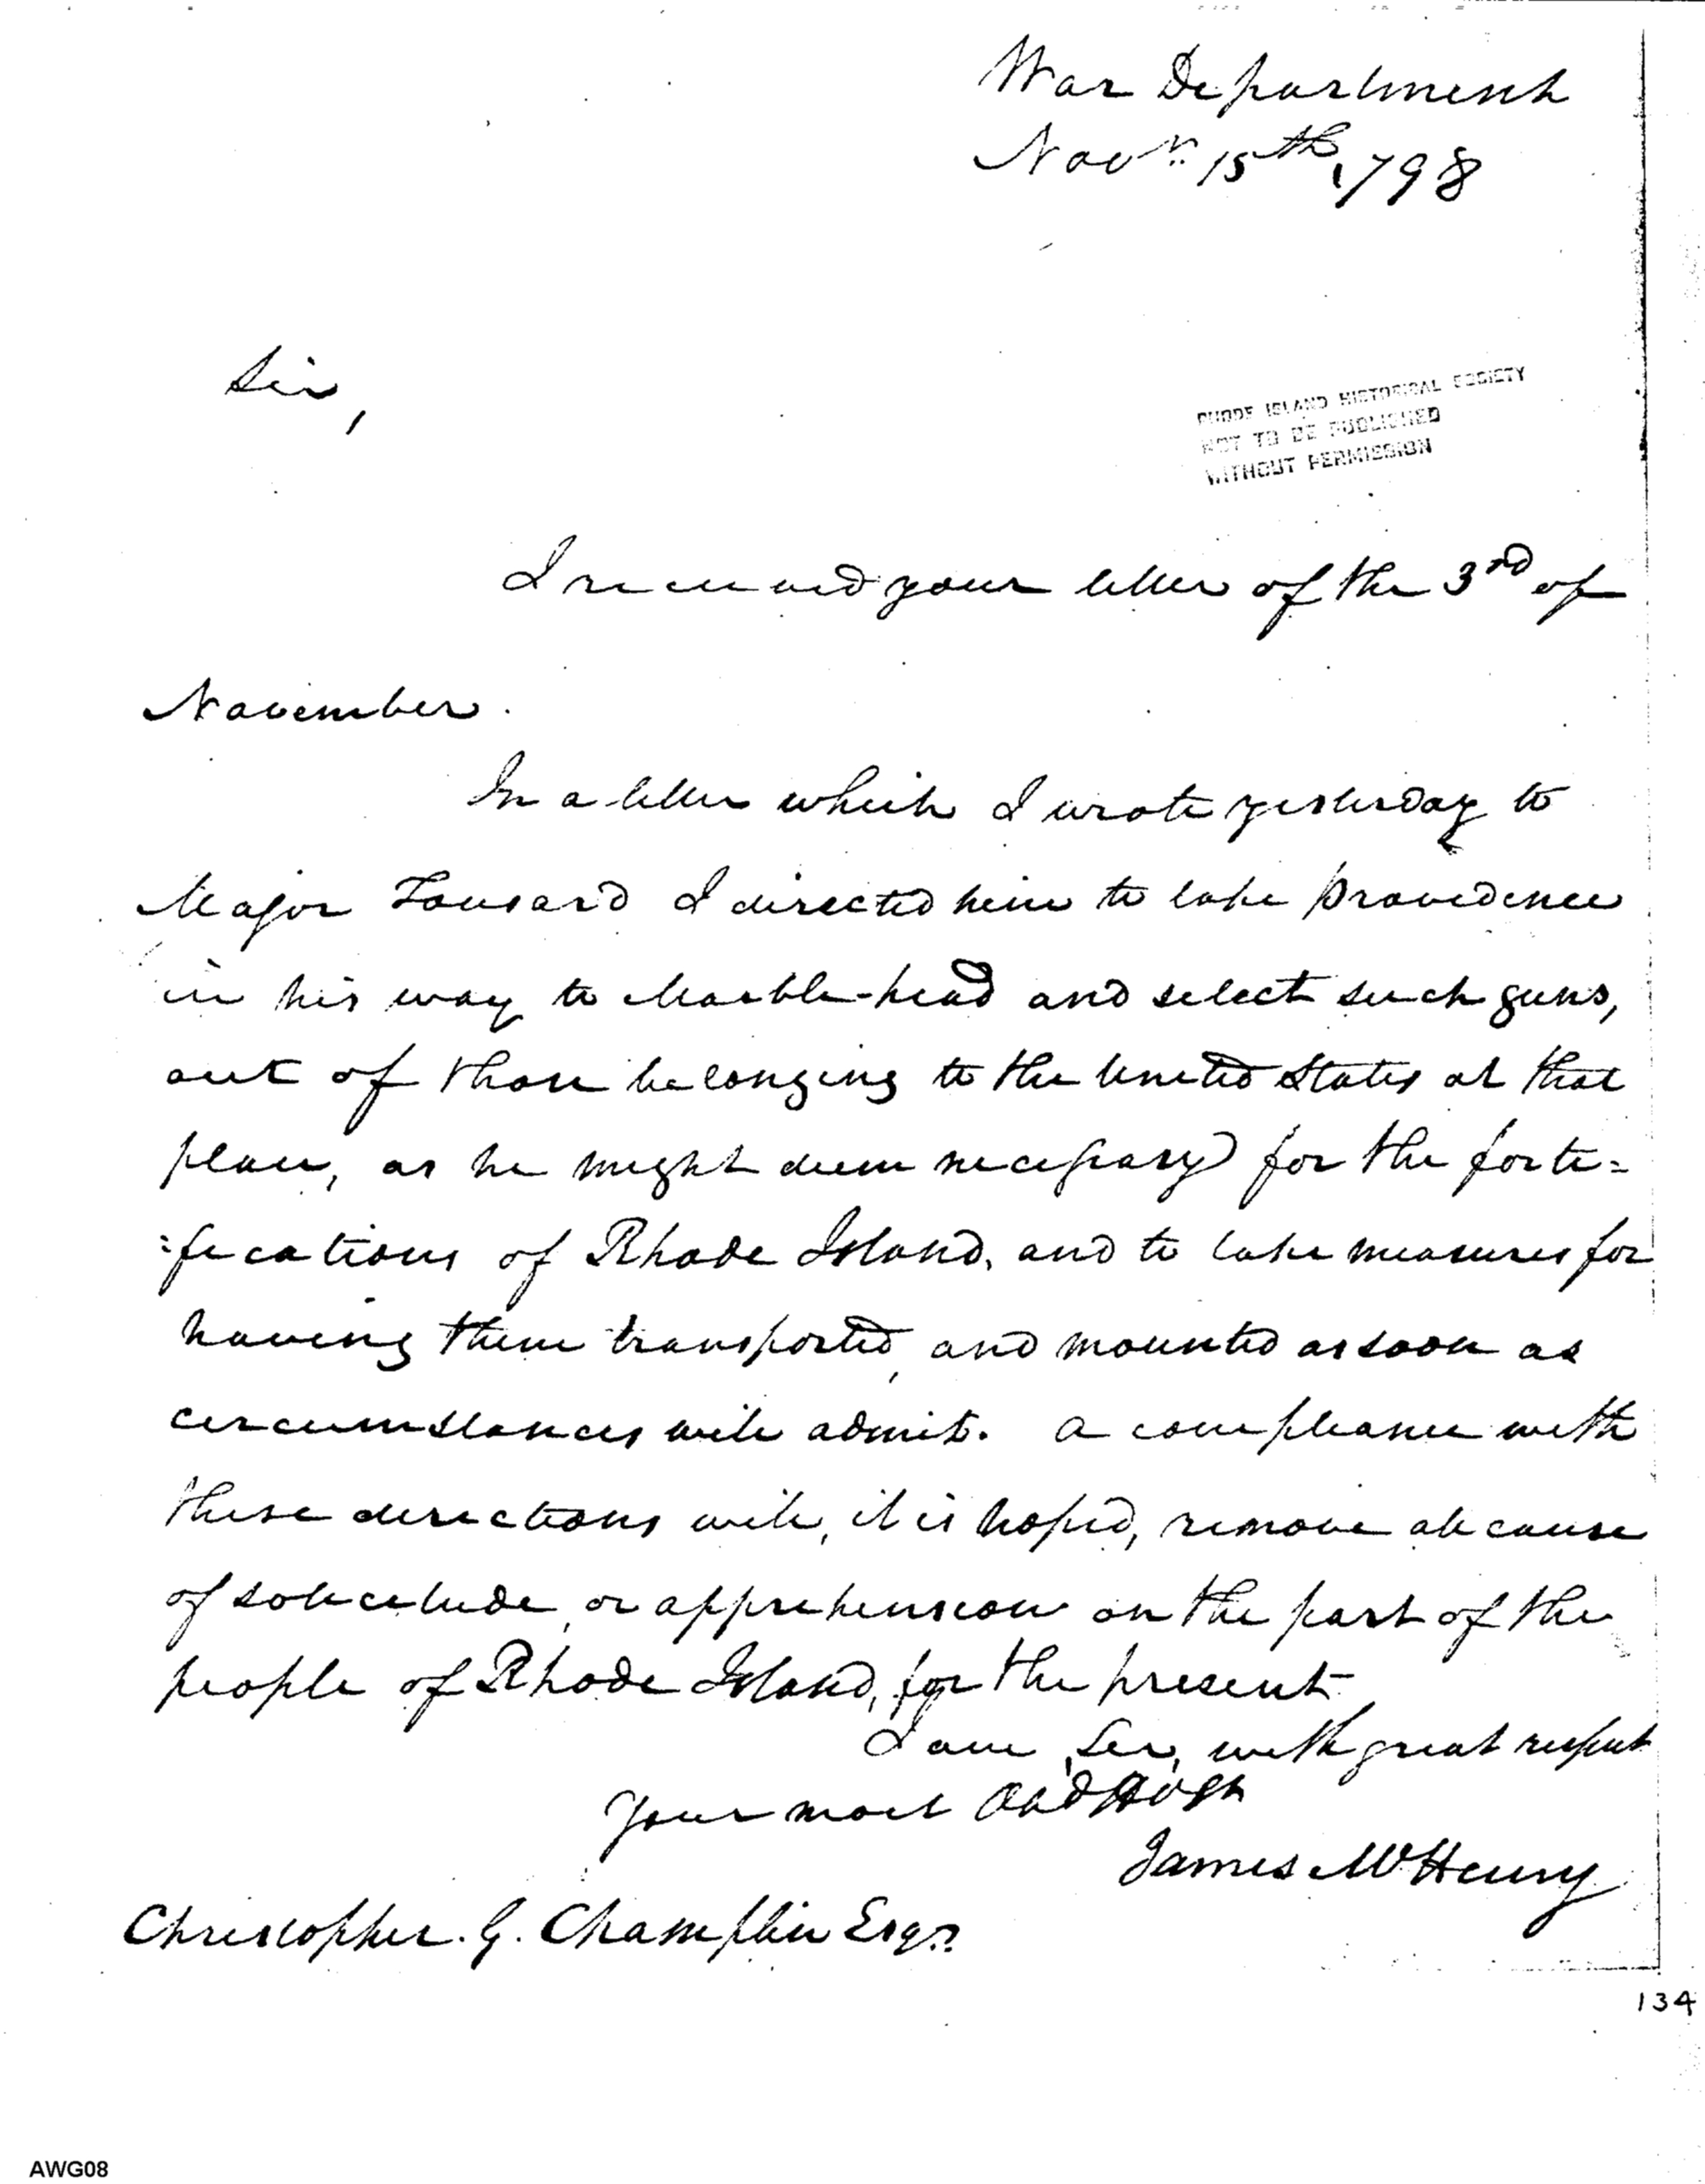 War Department
Novr. 15th 1798
Sir,
RHODE ISLAND HISTORICAL SOCIETY
NOT TO BE PUBLISHED
WITHOUT PERMISSION
I received your letter of the 3rd of
November.
In a letter which I wrote yesterday to
Major Tousard I directed him to take providence
in his way to Marble-head and select such guns,
out of those belonging to the United States at that
place, as he might deem necessary for the forti=
=fications of Rhode Island, and to take measures for
having them transported, and mounted as soon as
circumstances will admit. A compliance with
these directions will, it is hoped, remove all cause
of solicitude, or apprehension on the part of the
people of Rhode Island, for the present.
I am, Sir, with great respect
Your most Obd
James McHenry
Christopher. G. Champlin Esqr.
134
AWG08